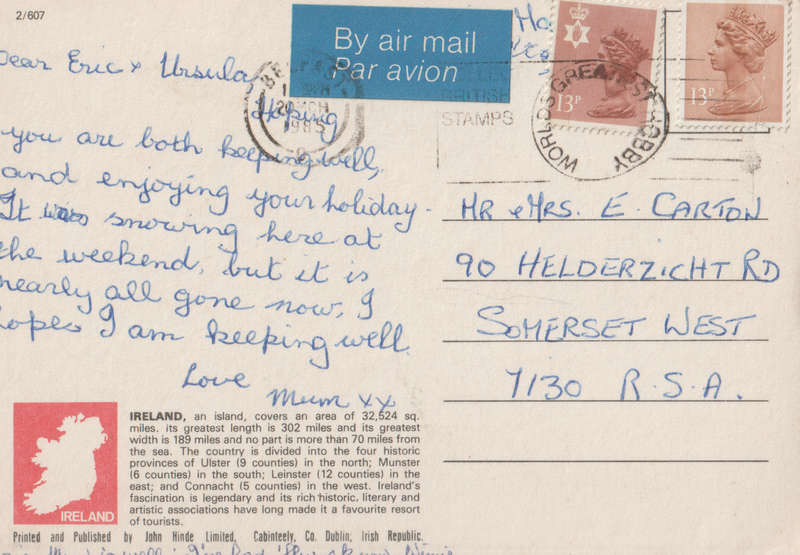 2/607
By air mail
Par avion
Dear Eric & Ursula,
Hoping
you are both keeping well,
and enjoying your holiday.
It was snowing here at
the weekend, but it is
nearly all gone now, I
hopes I am keeping well.
Love
Mum xx
BELFAST
1985
BRITISH
STAMPS
WORLDS GREATEST HOBBY
13P
13P
MR & MRS. E. CARTON
90 HELDERZICHT RD
SOMERSET WEST
7130 R.S.A.
IRELAND
IRELAND, an island, covers an area of 32,524 sq.
miles. its greatest length is 302 miles and its greatest
width is 189 miles and no part is more than 70 miles from
the sea. The country is divided into the four historic
provinces of Ulster (9 counties) in the north; Munster
(6 counties) in the south; Leinster (12 counties) in the
east; and Connacht (5 counties) in the west. Ireland's
fascination is legendary and its rich historic, literary and
artistic associations have long made it a favourite resort
of tourists.
Printed and Published by John Hinde Limited, Cabinteely, Co. Dublin, Irish Republic.